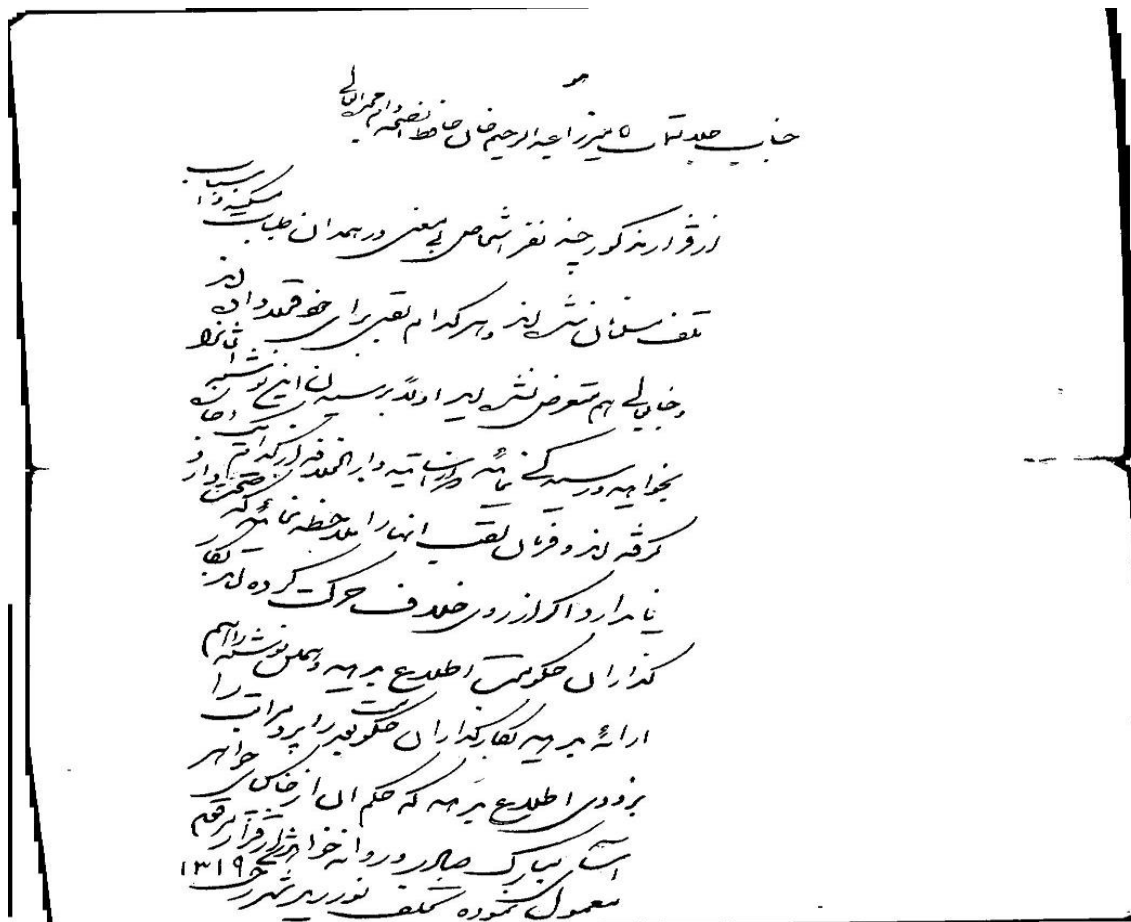 هو
جناب جلالتمآب میرزا عبدالرحیم خان حافظ الصحه دام اقباله العالی
از قرار مذکور چند نفر اشخاص بی معنی در همدان طبابت میکنند و اسباب
تلف مسلمانان شده اند و هر کدام لقبی برای خود قرار داده اند
و جنابعالی هم متعرض نشده اید اولا برسیدن این نوشته
بخواهید و رسیدگی نمائید دارالخلافه از کدام
گرفته اند و فرمان لقب انها را ملاحظه نمائید که صحت دارد و
یا ندارد و اگر از روی خلاف حرکت کرده اند بکار
گذاران حکومت اطلاع بدهید و همین نوشته را هم
ارائه بدهید بکارگذاران حکومت و مراتب را
بزودی اطلاع بدهید که حکم ان از خاکپای جواهر
آسای مبارک صادر و روانه خواهد شد از قرار مرقوم
معمول نموده تخلف نورزید شهر ۱۳۱۹